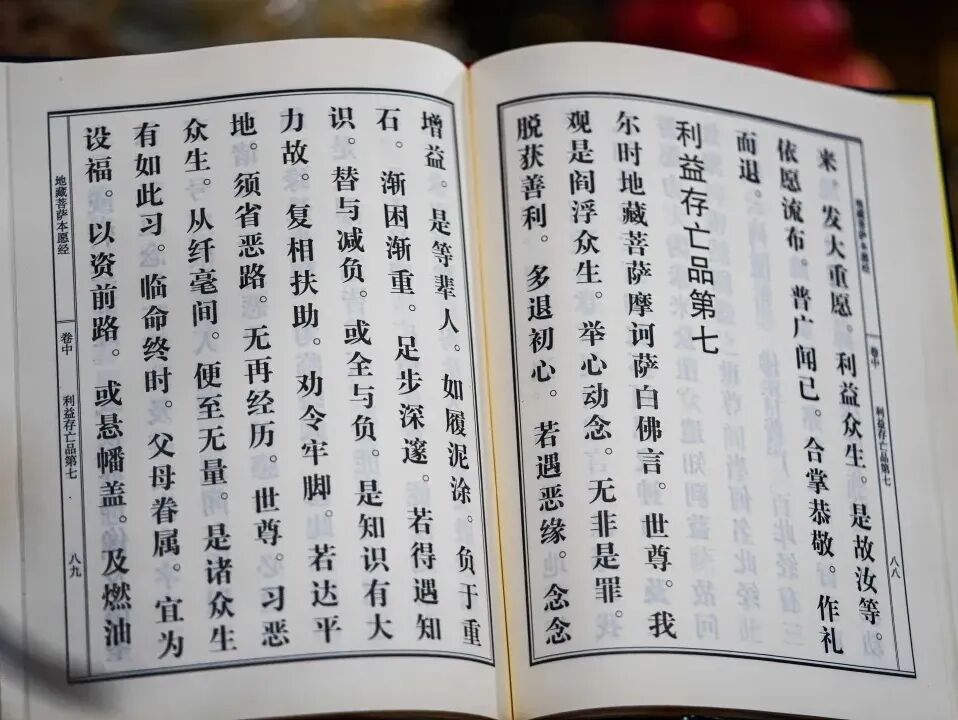 地藏菩萨本愿经 卷中 利益存亡品第七 八八
来 发大重愿。利益众生。是故汝等。
依愿流布。普广闻已。合掌恭敬。作礼
而退。
利益存亡品第七
尔时地藏菩萨摩诃萨白佛言。世尊。我
观是阎浮众生。举心动念。无非是罪。
脱获善利。多退初心。若遇恶缘。念念
增益。是等辈人。如履泥涂。负于重
石。渐困渐重。足步深邃。若得遇知
识。替与减负。或全与负。是知识有大
力故。复相扶助。劝令牢脚。若达平
地。须省恶路。无再经历。世尊。习恶
众生。从纤毫间。便至无量。是诸众生
有如此习。临命终时。父母眷属。宜为
设福。以资前路。或悬幡盖。及燃油
地藏菩萨本愿经 卷中 利益存亡品第七 八九